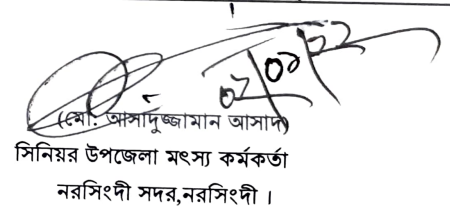 (মো: আসাদুজ্জামান আসাদ)
সিনিয়র উপজেলা মৎস্য কর্মকর্তা
নরসিংদী সদর,নরসিংদী ।